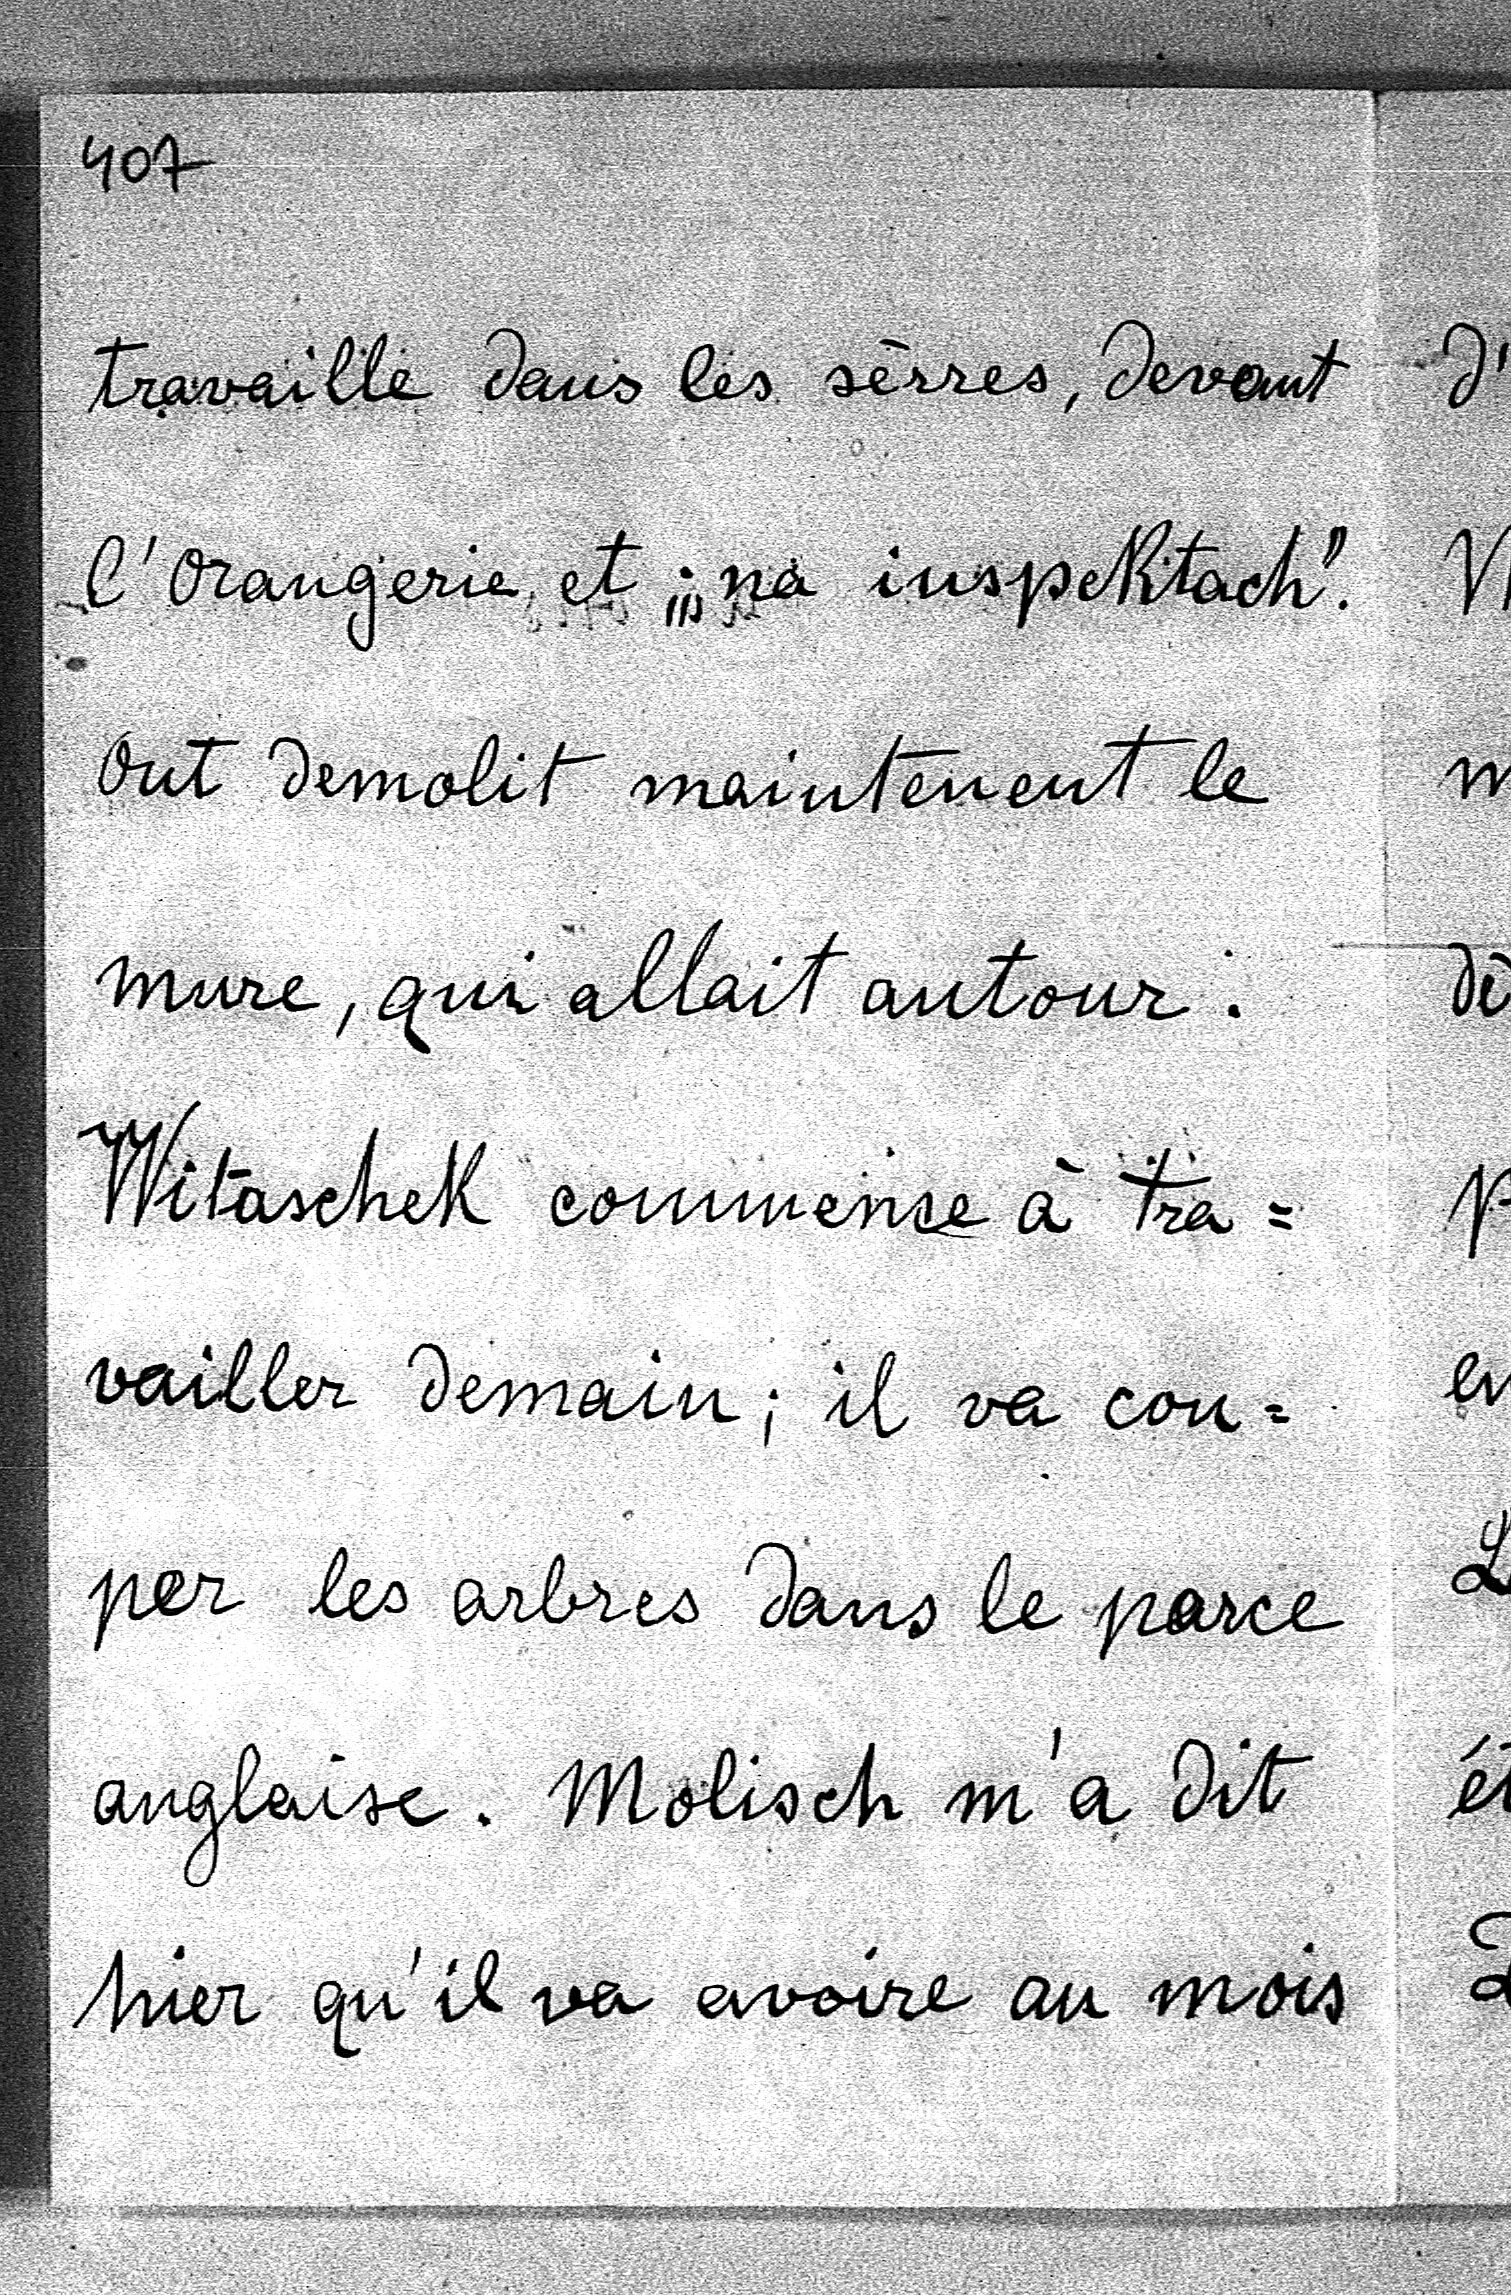 407
travaille dans les sèrres, devant
l'Orangerie et „na inspektach".
Out demolit maintenent le
mure, qui allait autour.
Witaschek commense à tra=
vailler demain; il va cou=
per les arbres dans le parce
anglaise. Molisch m'a dit
hier qu'il va avoire au mois